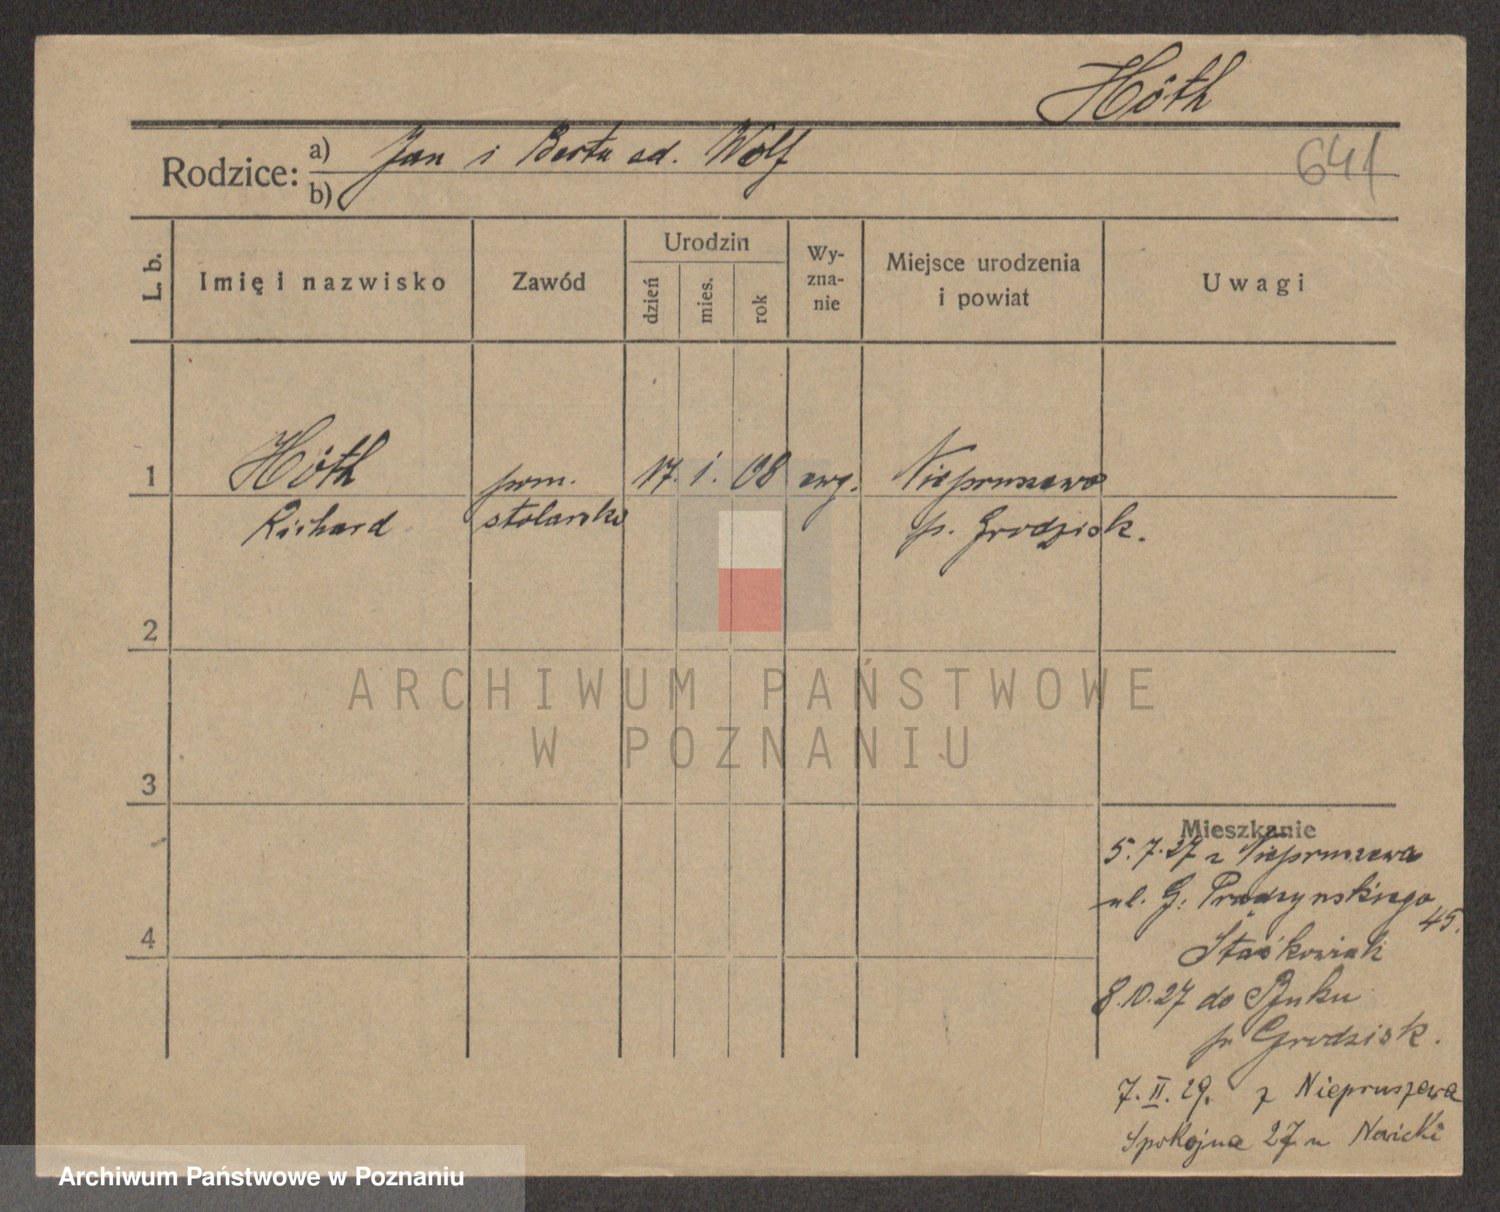 Höth
Rodzice: a) Jan i Berta od. Wolf
b)
641
L. b.
Imię i nazwisko
Zawód
Urodzin
dzień
mies.
rok
Wy-
zna-
nie
Miejsce urodzenia
i powiat
Uwagi
1
Höth
Richard
pom.
stolarski
17. 1. 08
ewg.
Niepruszewo
p. Grodzisk.
2
3
4
ARCHIWUM PAŃSTWOWE
W POZNANIU
Mieszkanie
5.7.27 z Niepruszewa
ul. G. Prądzyńskiego
45.
Staśkowiak
8.10.27 do Buku
p. Grodzisk.
7.II.29. z Niepruszewa
Spokojna 27 u Nowicki
Archiwum Państwowe w Poznaniu